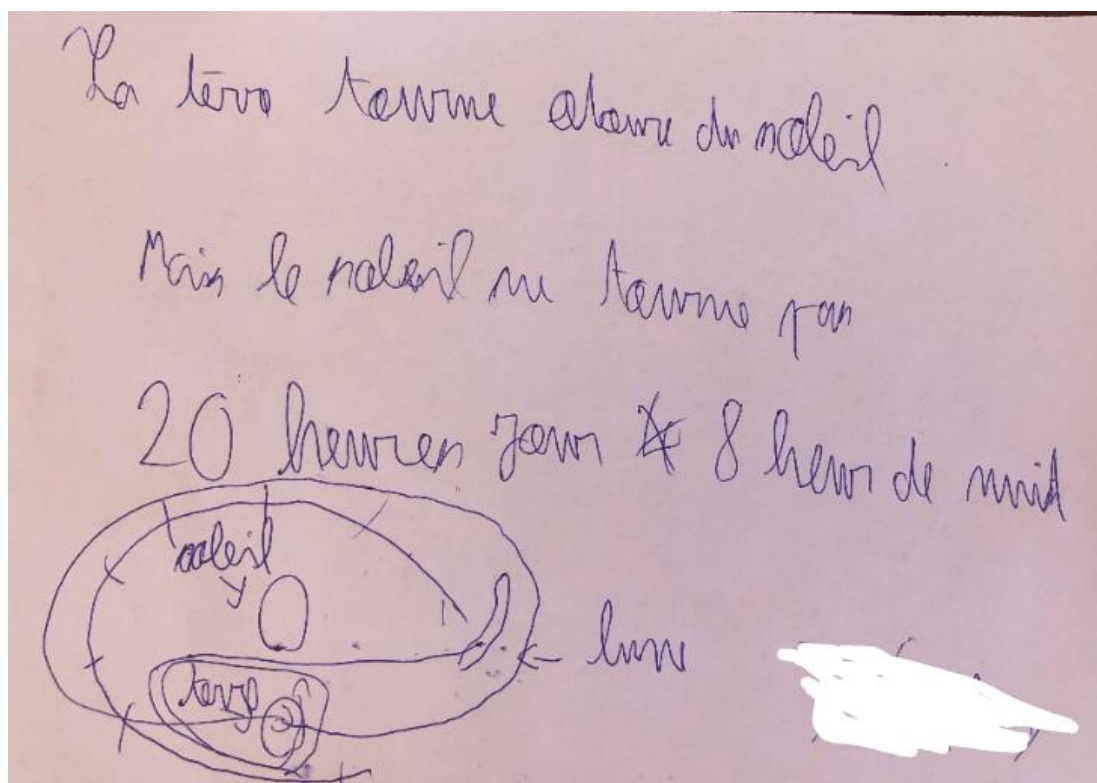 La tèrre tourne atoure du soleil
Mais le soleil ne tourne pas
20 heures jour 8 heur de nuid
soleil
lune
terre